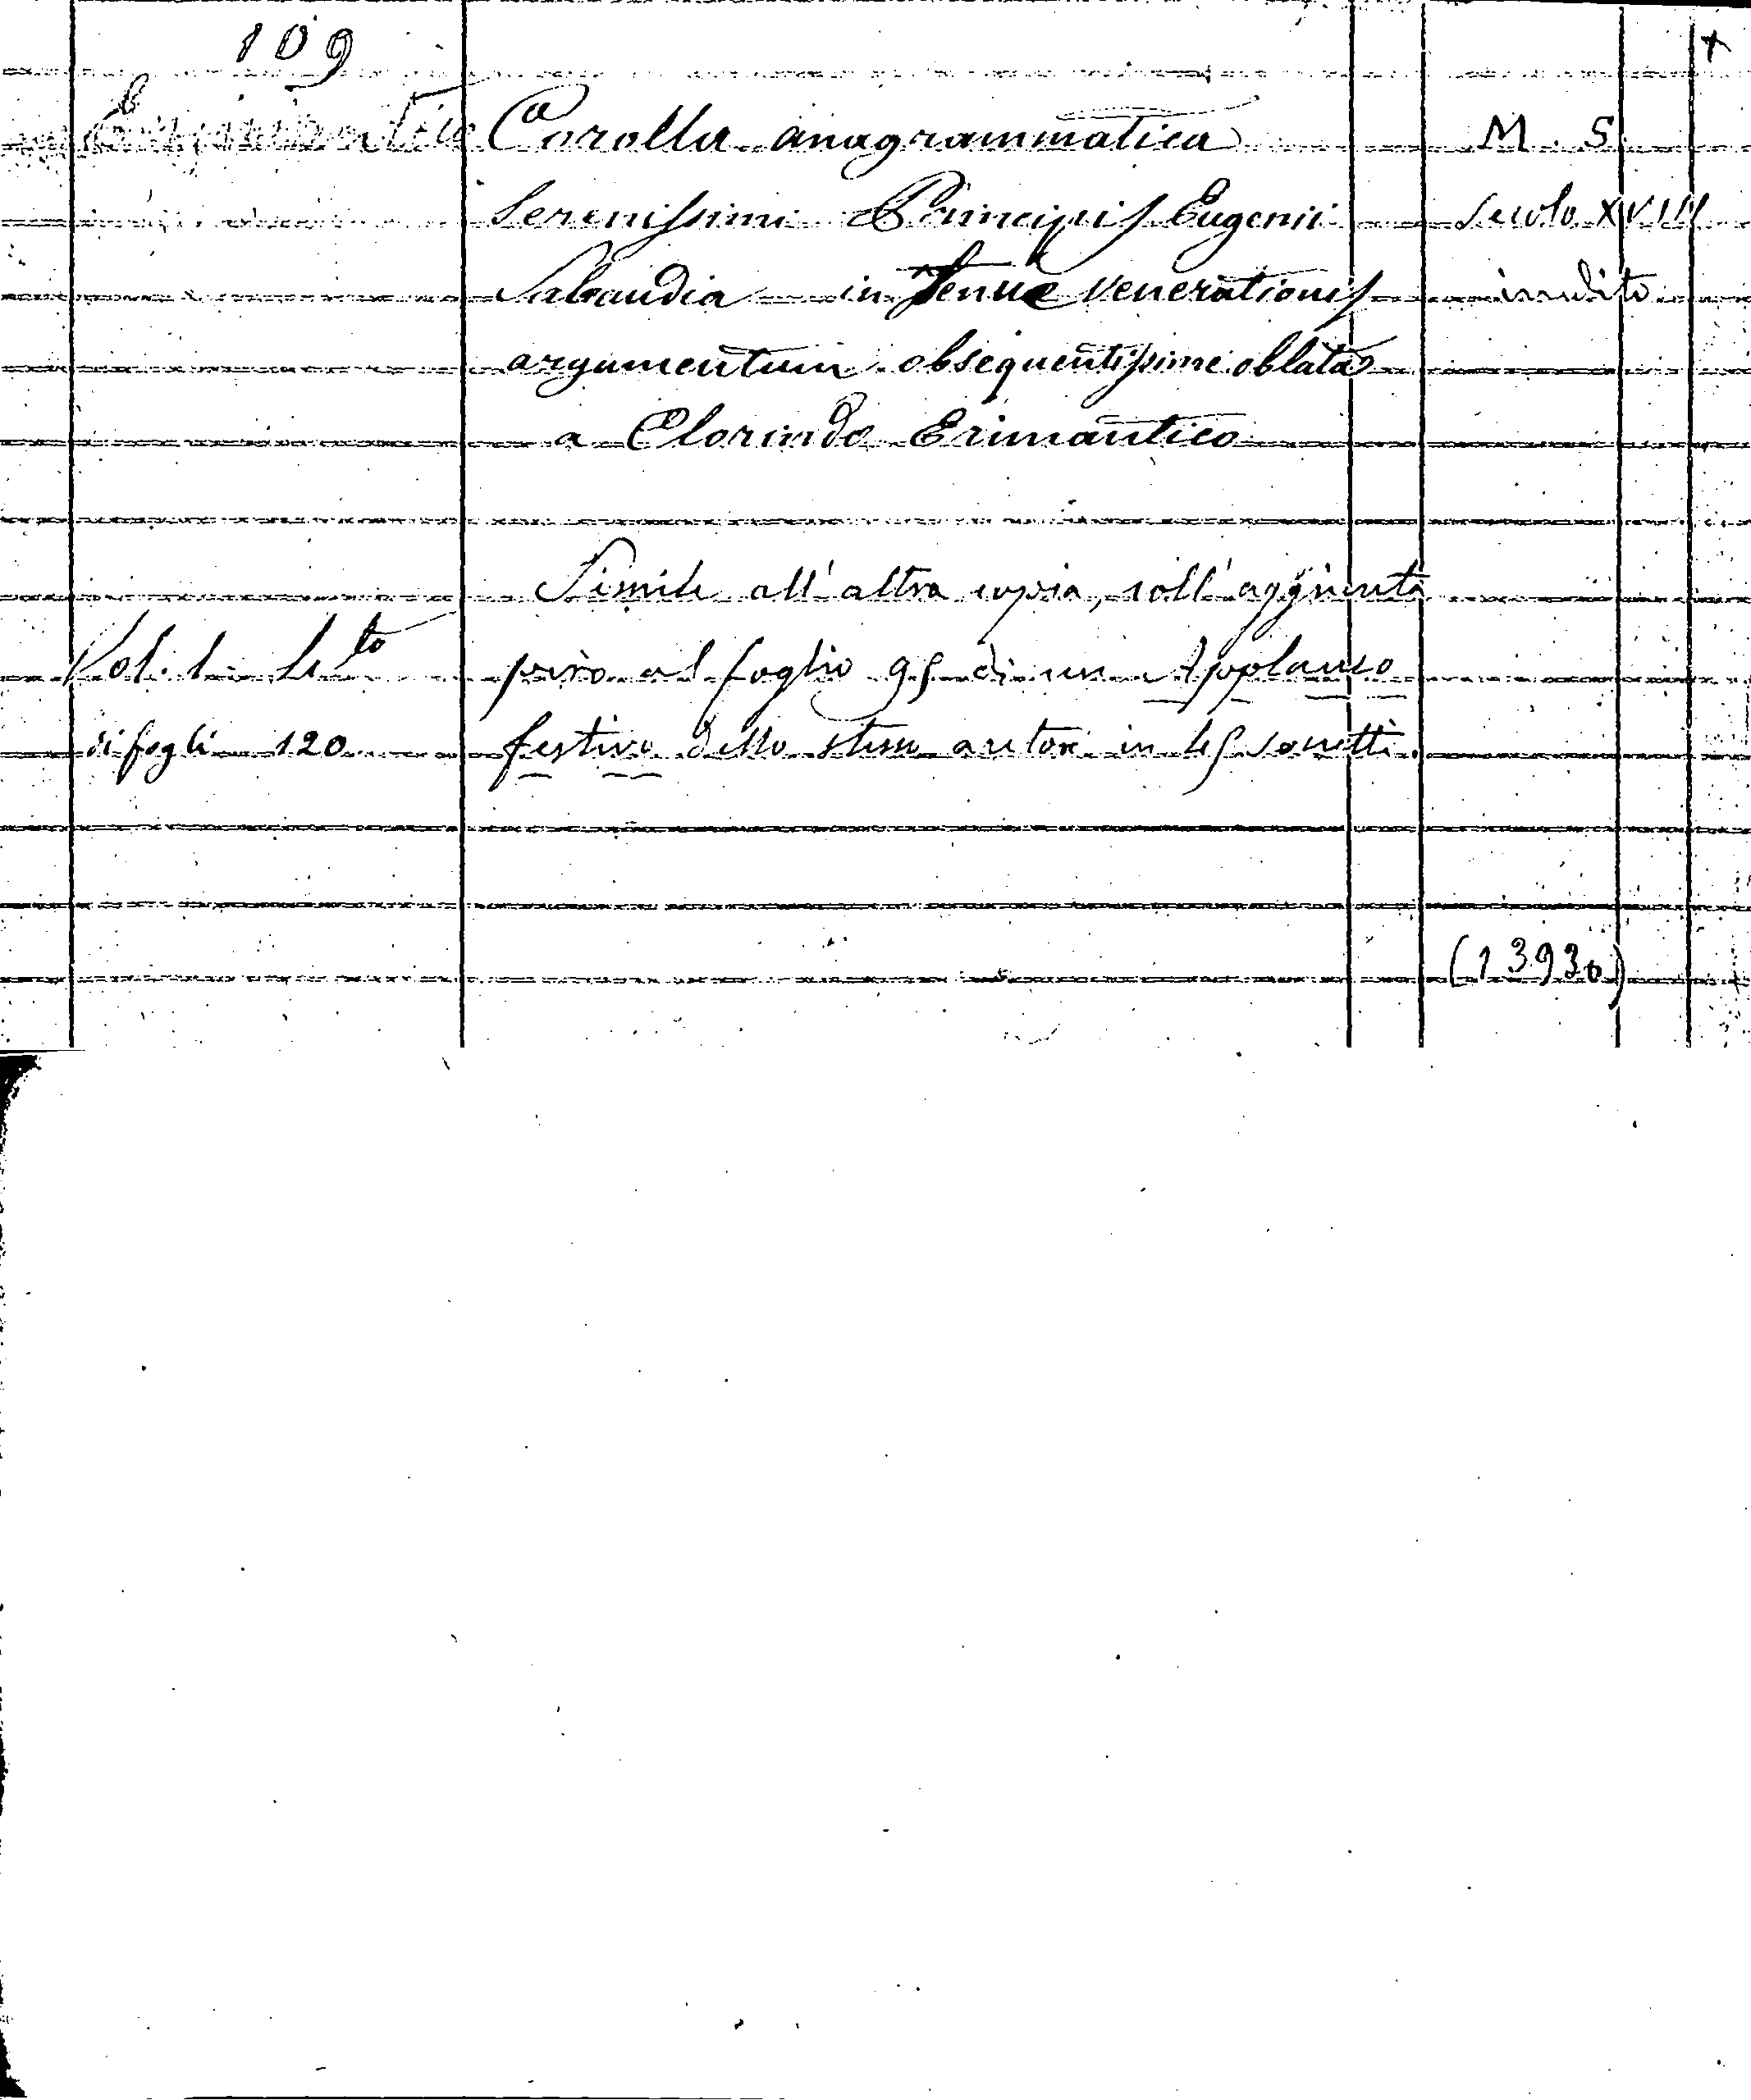 109
+
Corolla anagrammatica
M. S.
Serenissimi Principis Eugenii
Secolo XVIII
Sabaudia in tenue venerationis
inedito
argumentum obsequentissime oblata
a Clorindo Erimantico
Simile all'altra copia, coll'aggiunta
Vol. 1 in 4to
però al foglio 95 di un Applauso
di fogli 120
festivo dello stesso autore in 45 sonetti.
(13930)